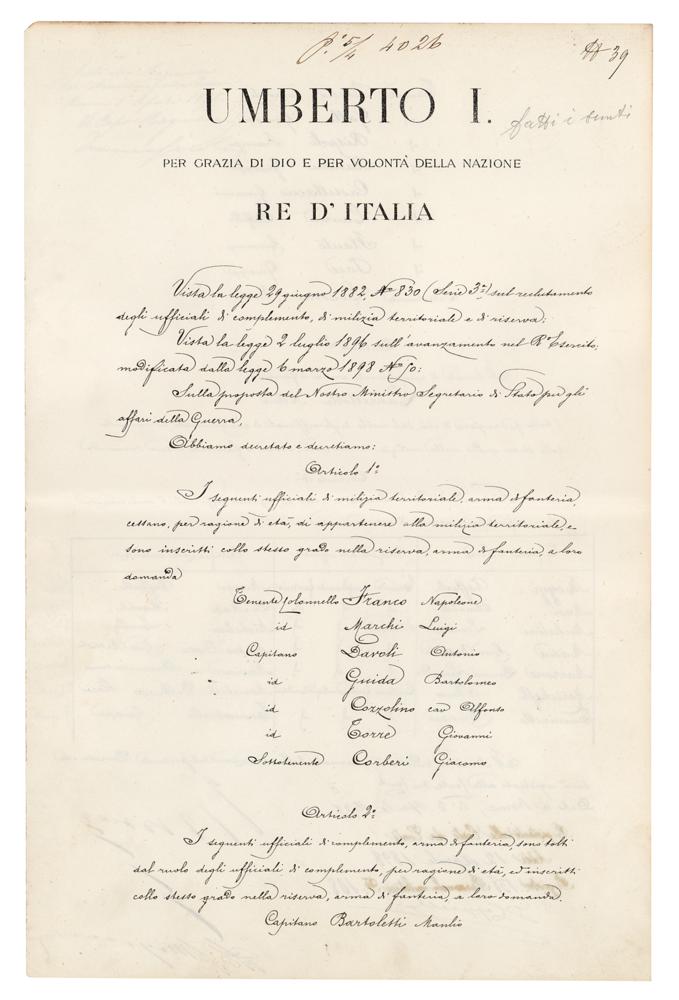 4026
39
UMBERTO I.
fatti i sunti
PER GRAZIA DI DIO E PER VOLONTA' DELLA NAZIONE
RE D'ITALIA
Vista la legge 29 giugno 1882, No 830 (Serie 3a) sul reclutamento
degli ufficiali di complemento, di milizia territoriale e di riserva;
Vista la legge 2 luglio 1896 sull'avanzamento nel Ro Esercito,
modificata dalla legge 6 marzo 1898 No 50:
Sulla proposta del Nostro Ministro Segretario di Stato per gli
affari della Guerra,
Abbiamo decretato e decretiamo:
Articolo 1o
I seguenti ufficiali di milizia territoriale, arma di fanteria,
cessano, per ragione di età, di appartenere alla milizia territoriale, e
sono inscritti collo stesso grado nella riserva, arma di fanteria, a loro
domanda
Tenente Colonnello Franco Napoleone
id Marchi Luigi
Capitano Davoli Antonio
id Guida Bartolomeo
id Cozzolino cav Alfonso
id Torre Giovanni
Sottotenente Corberi Giacomo
Articolo 2o
I seguenti ufficiali di complemento, arma di fanteria, sono tolti
dal ruolo degli ufficiali di complemento, per ragione di età, ed inscritti
collo stesso grado nella riserva, arma di fanteria, a loro domanda.
Capitano Bartoletti Manlio